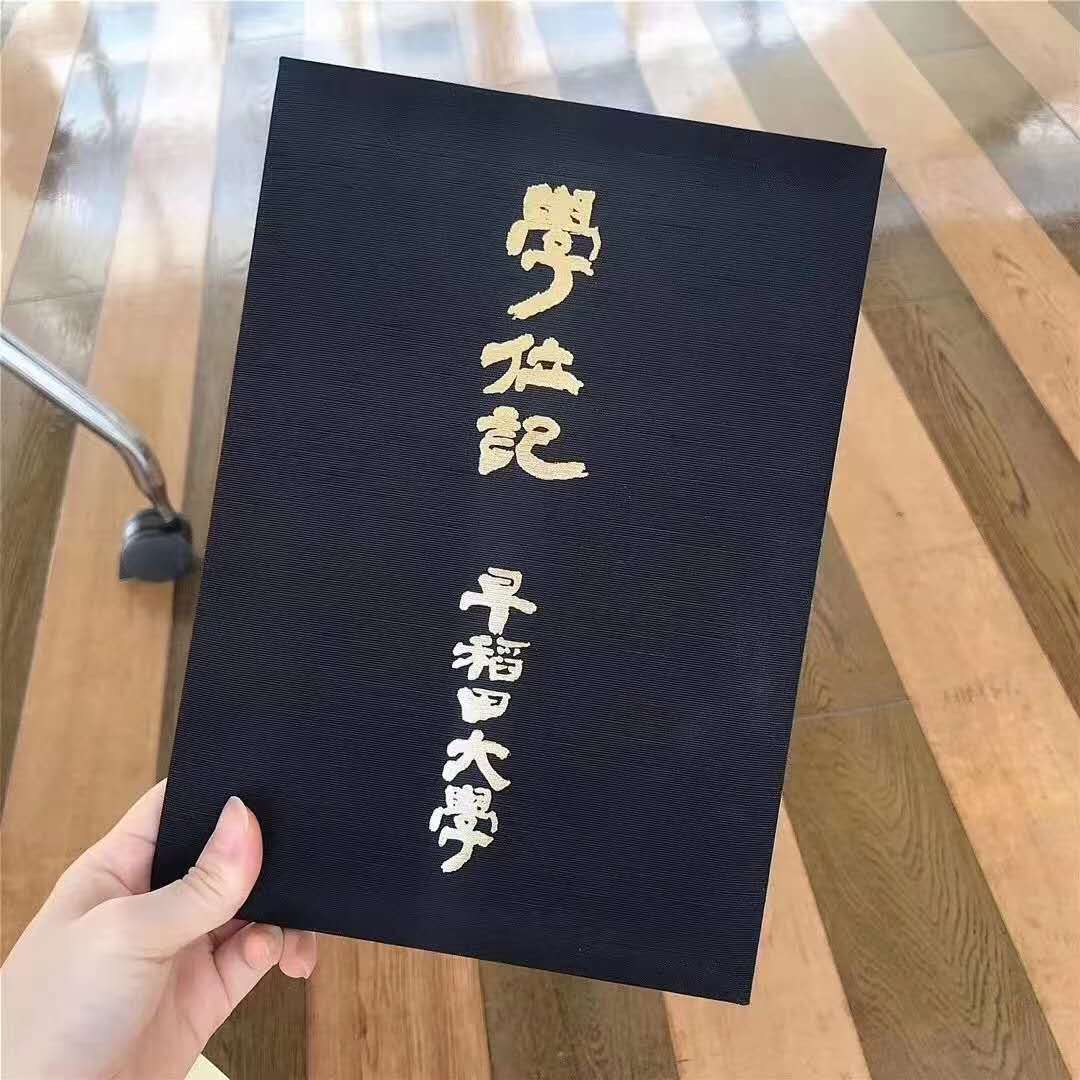 學位記
早稻田大學